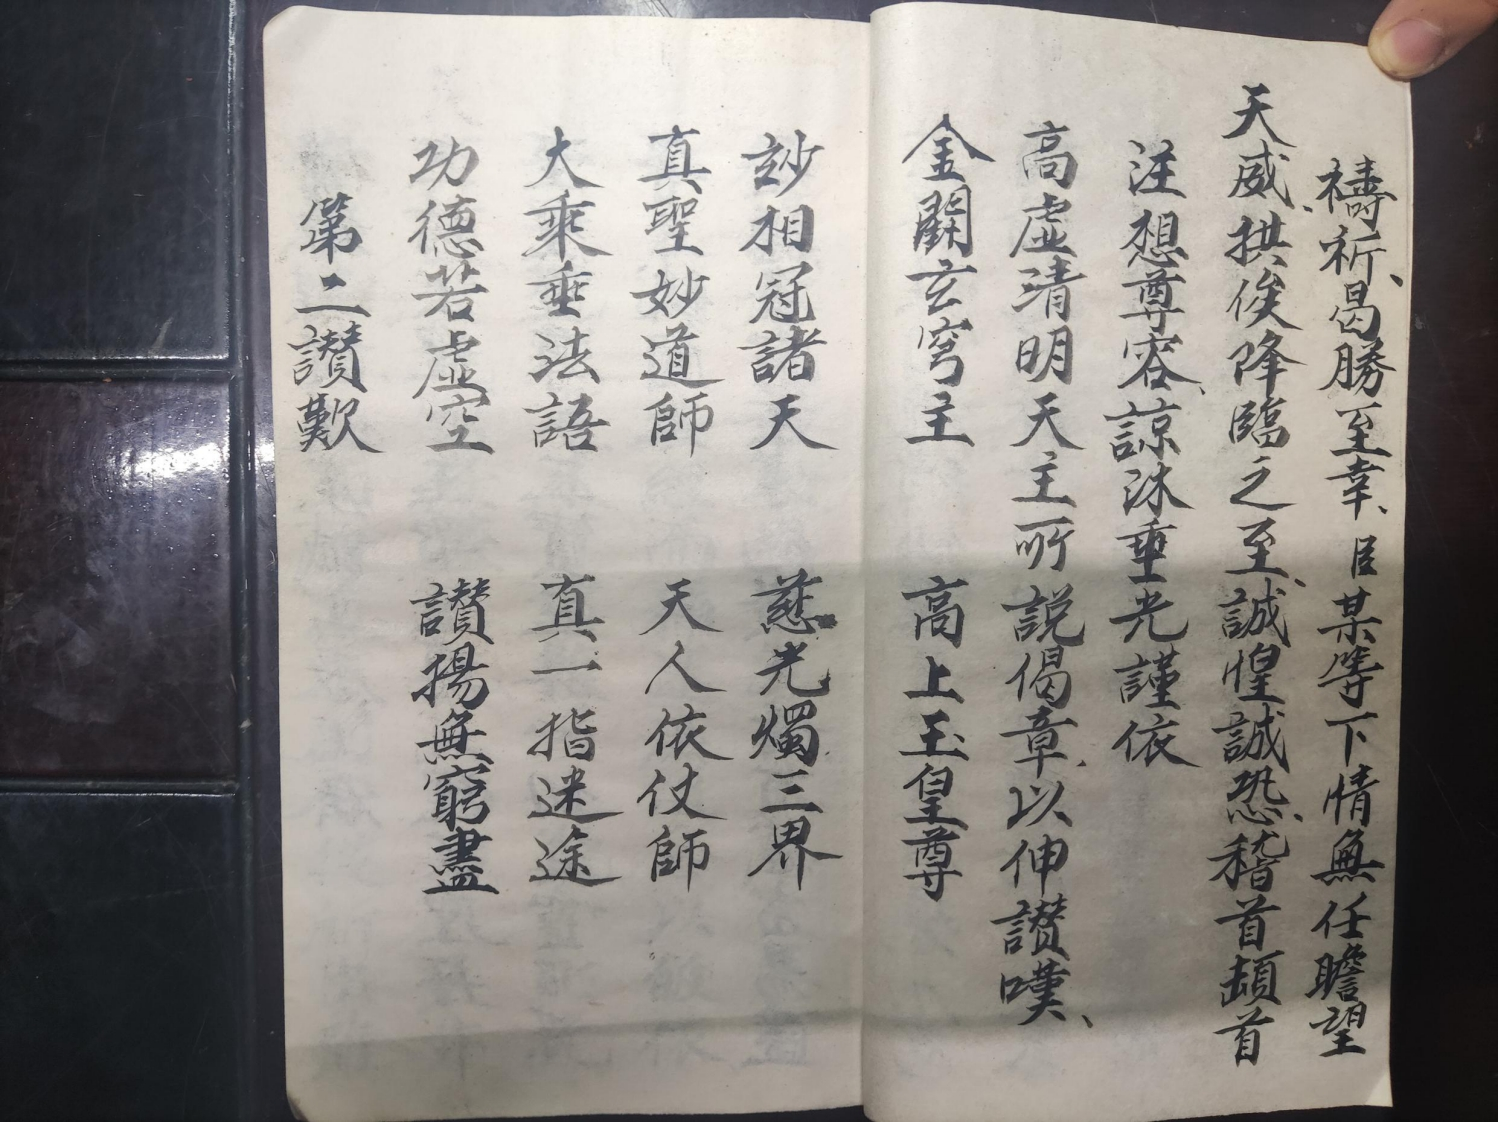 禱祈、曷勝至幸、臣某等下情無任瞻望
天威、拱俟降臨之至、誠惶誠恐、稽首頓首
注想尊容、諒沐垂光謹依
高虛清明天主所說偈章、以伸讃嘆、
金闕玄穹主 高上玉皇尊
玅相冠諸天 慈光燭三界
真聖妙道師 天人依仗師
大乘垂法語 真一指迷途
功德若虛空 讃揚無窮盡
第二讃歎